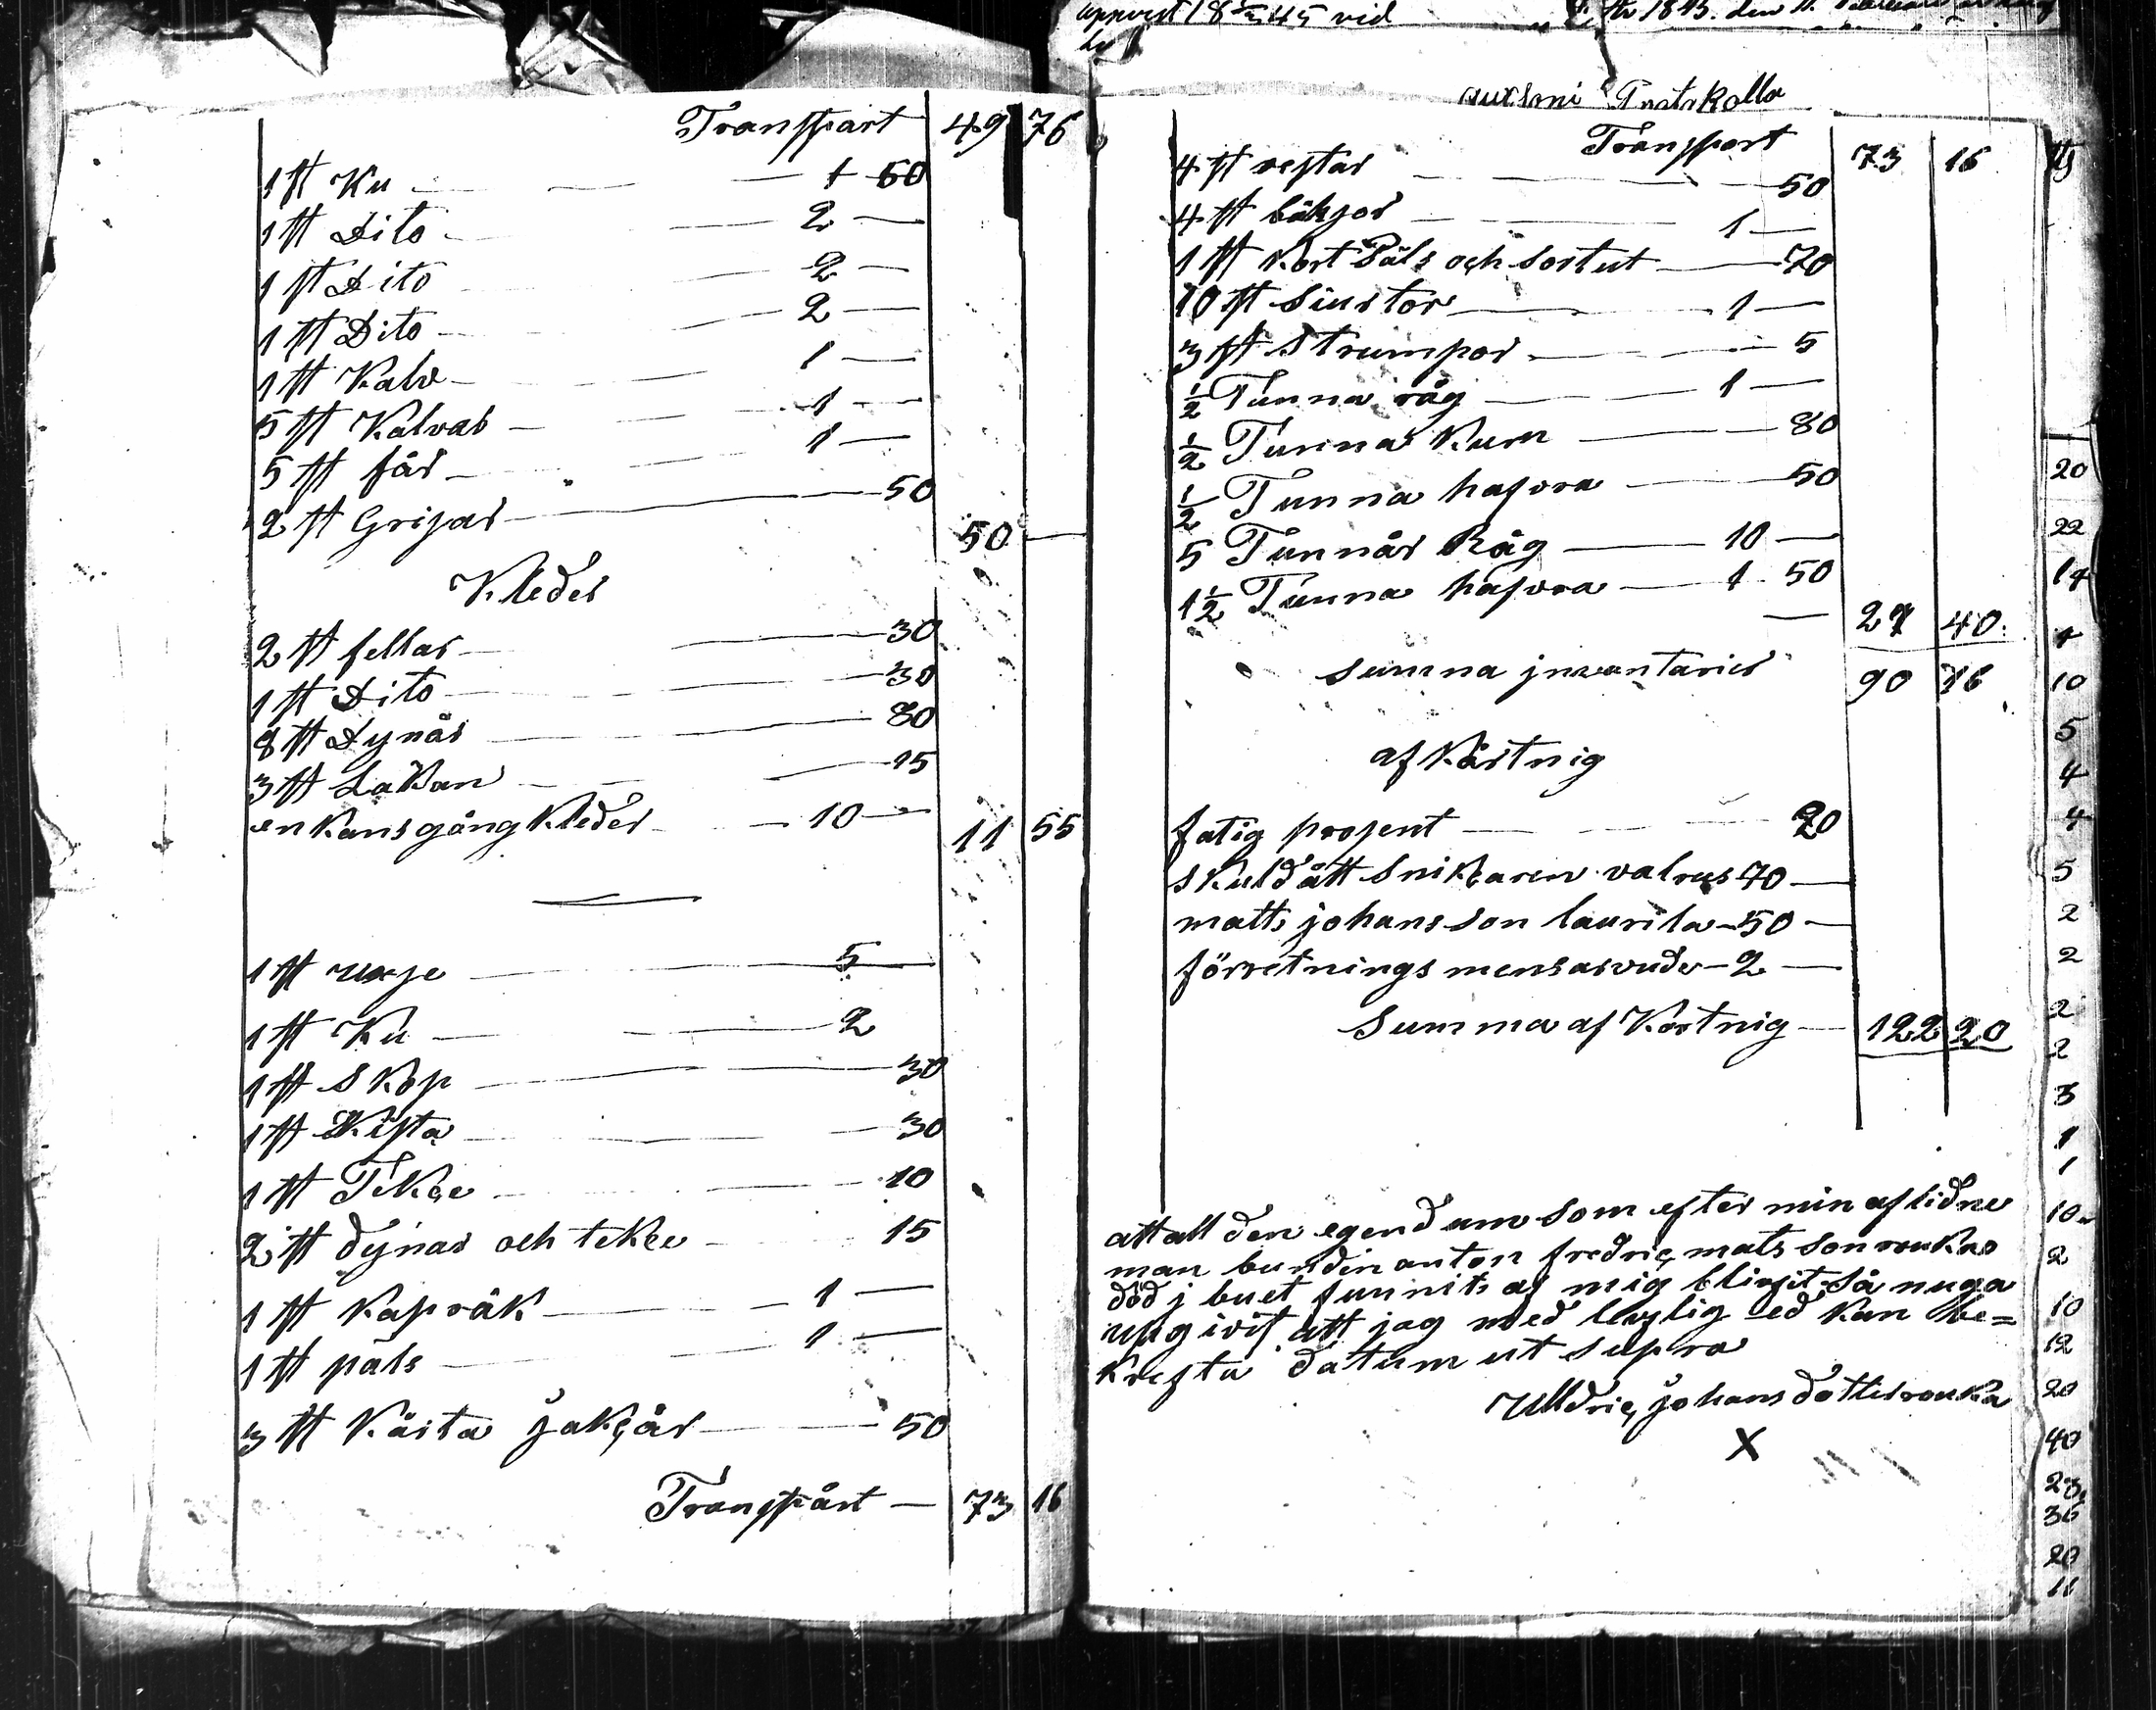 Transspart 49 76
1 st Ku 1 50
1 st Dito 2 —
1 st Dito 2 —
1 st Dito 2 —
1 st Kalv 1 —
5 st Kalvar 1 —
5 st får 1 —
2 st Grisar 50
50 —
Kleder
2 st fellar 30
1 st Dito 30
8 st Dynår 80
3 st Lakan 15
en Kans gång Kleder 10 — 11 55
1 st uxje 5
1 st Ku 2
1 st Skop 30
1 st Kista 30
1 st Tekçe 10
2 st dynar och tekçe 15
1 st Kapråk 1 —
1 st päls 1 —
3 st Kårta jakçår 50
Transpårt — 73 16
Protokollo
Transport 73 16
4 st vestar 50
4 st bökjor 1 —
1 st Kort Päls och sortut 70
10 st siurtor 1 —
3 st Strumpor 5
1/2 Tunna råg 1 —
1/2 Tunna Kurn 80
1/2 Tunna hafvra 50
5 Tunnår Råg 10 —
1 1/2 Tunna hafvra 1 50
— 27 40
summa jnvantarier 90 16
af Kårtnig
fatig prosent 20
skuld ått snikçaren valrus 70 —
matts johansson laurila 50 —
förretnings mensarvude 2 —
Summa af Kortnig — 122 20
att all den egendum som efter min aflidne
man bundin anton fredric matsson rouka
död j buet funnits af mig blivit så nuga
upgivit att jag med levlig ed kan be=
krefta datum ut supra
Ulldric johans dotter rouka
X
20
22
14
1
10
5
4
4
5
2
2
2
2
3
1
1
10
2
10
12
20
40
23
36
20
11